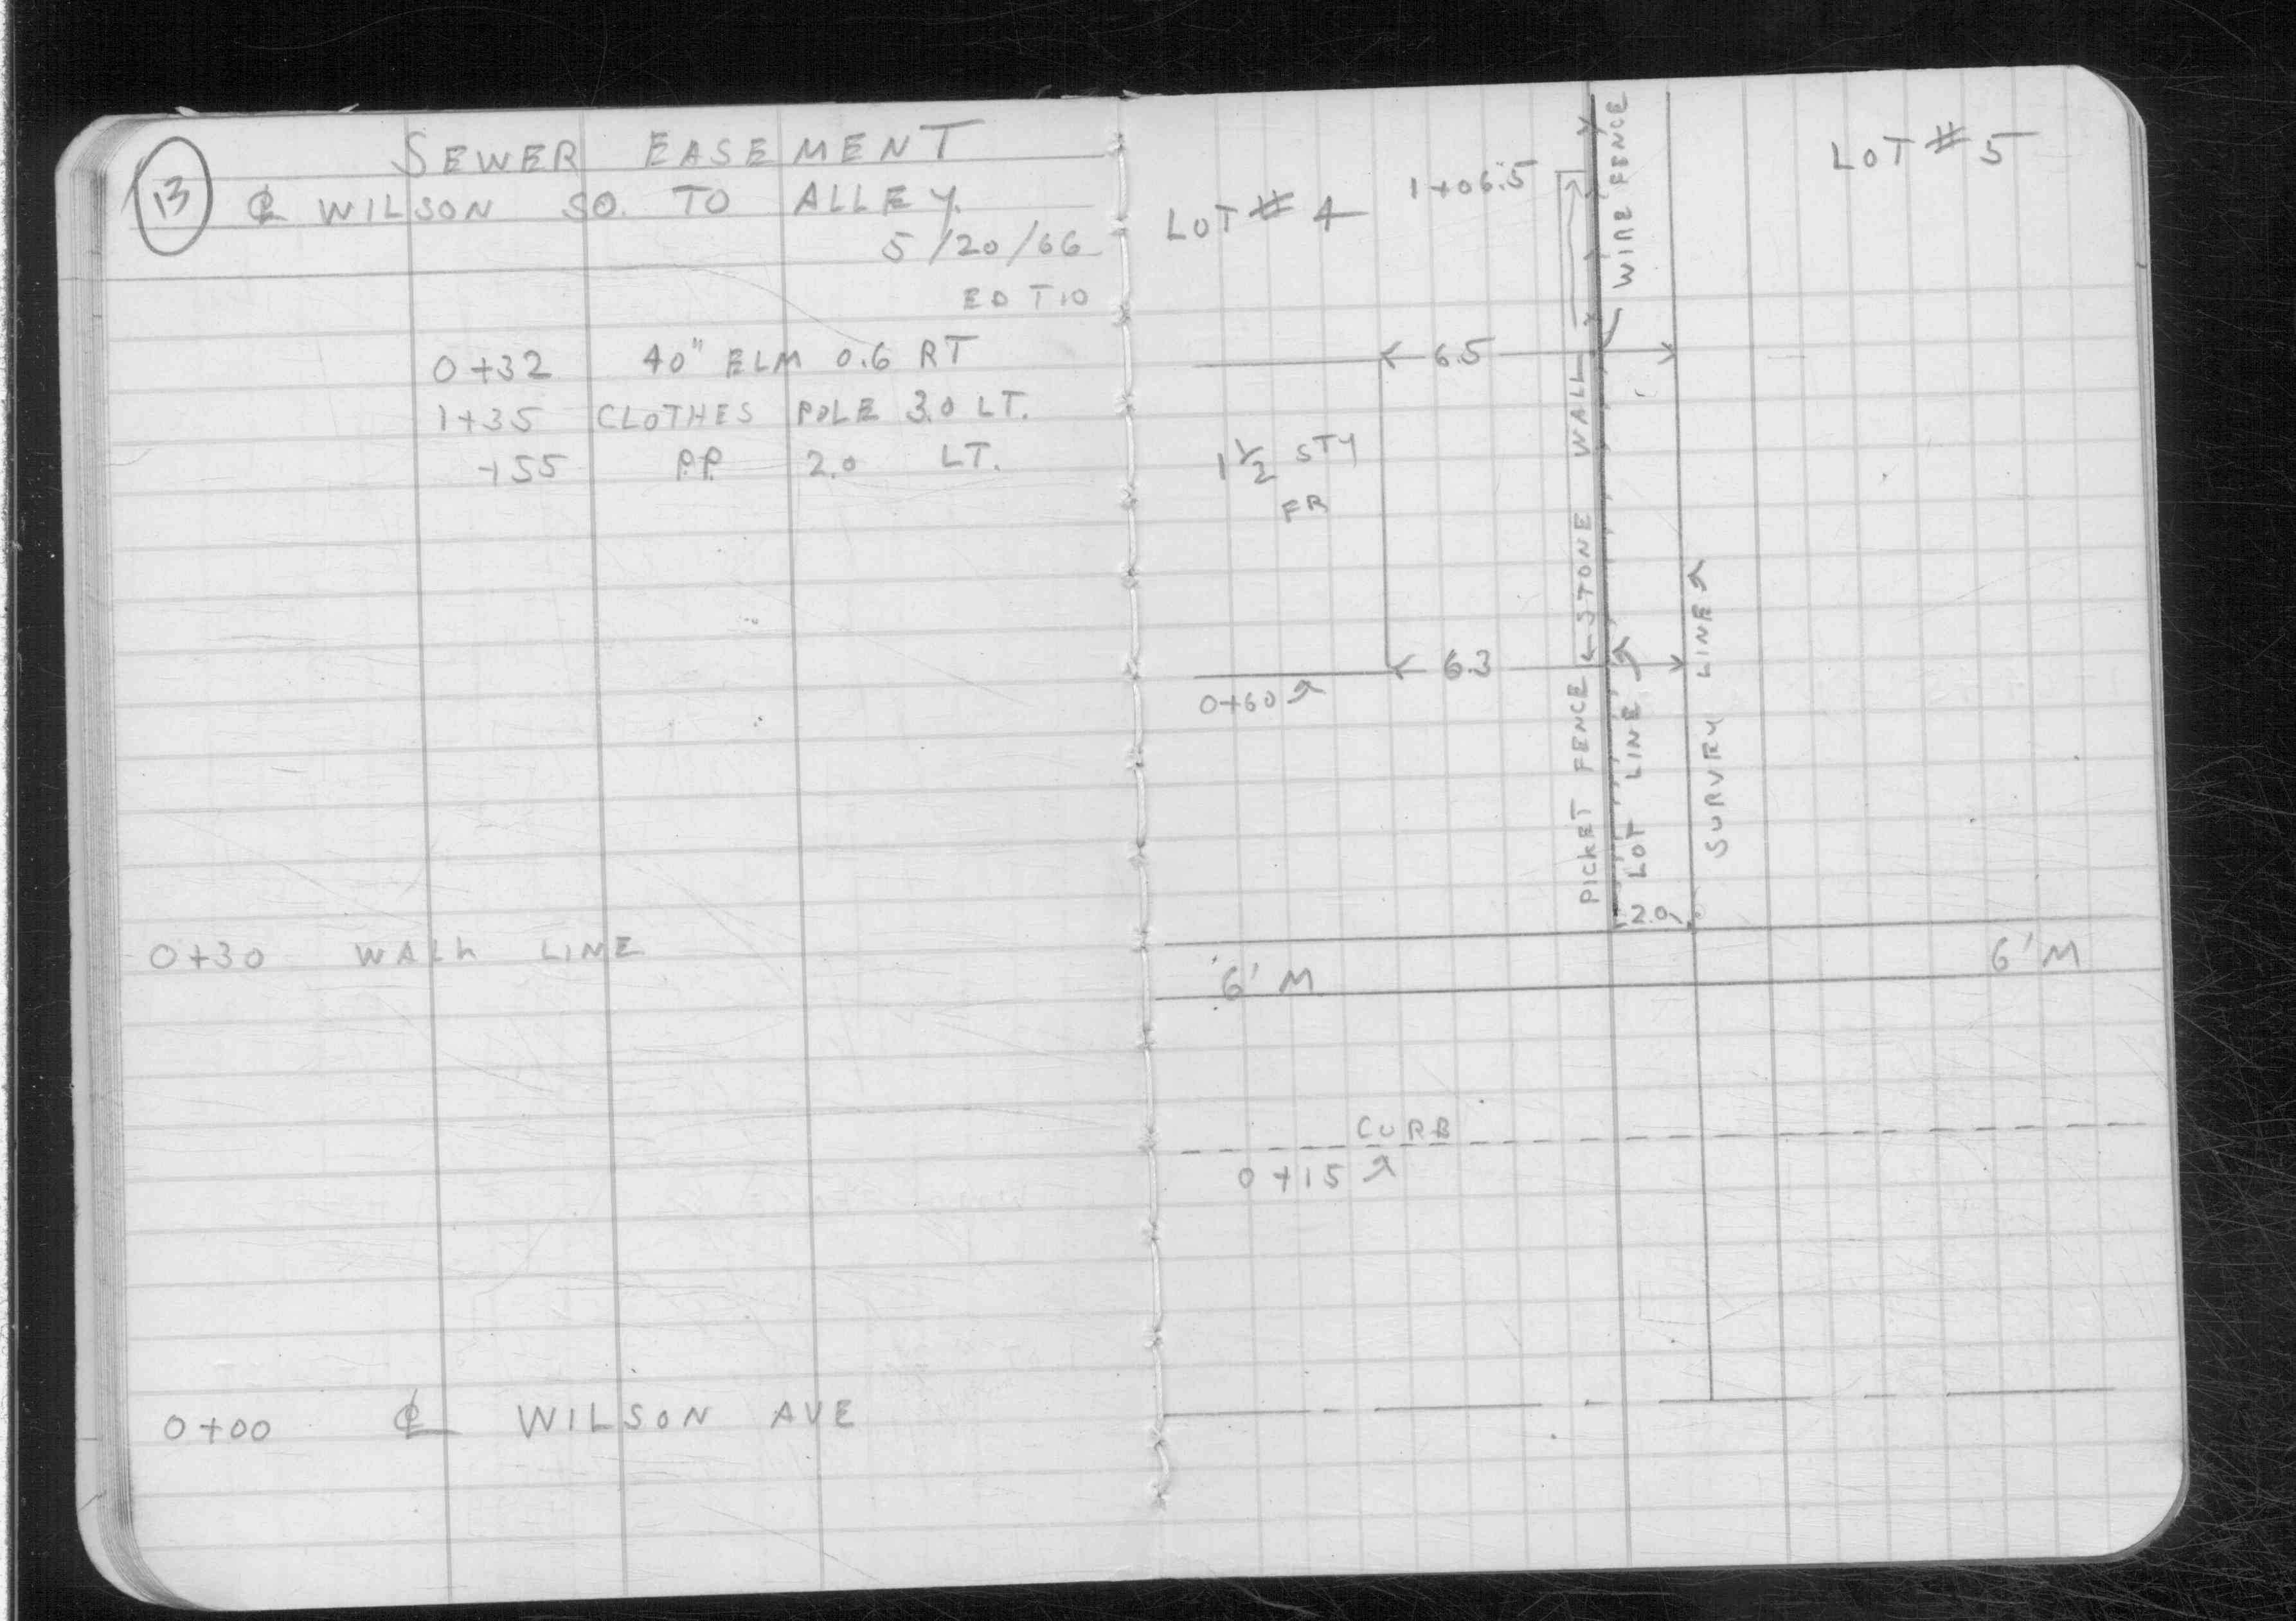 13
SEWER EASEMENT
℄ WILSON SO. TO ALLEY.
5/20/66
0+32 40" ELM 0.6 RT
1+35 CLOTHES POLE 3.0 LT.
+55 P.P. 2.0 LT.
0+30 WALK LINE
0+00 ℄ WILSON AVE
LOT # 4
1+06.5
WIRE FENCE
LOT # 5
6.5
STONE WALL
1 1/2 STY
FR
6.3
0+60
PICKET FENCE
LOT LINE
SURVEY LINE
2.0
6' M
6' M
CURB
0+15